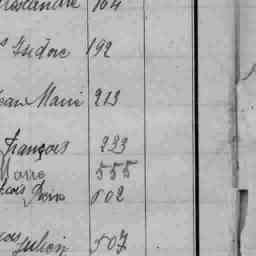 Alexandre 164
s Isidore 192
Jean Marie 213
François 233
Pierre 555
çois Pierre 602
çois Julien 507